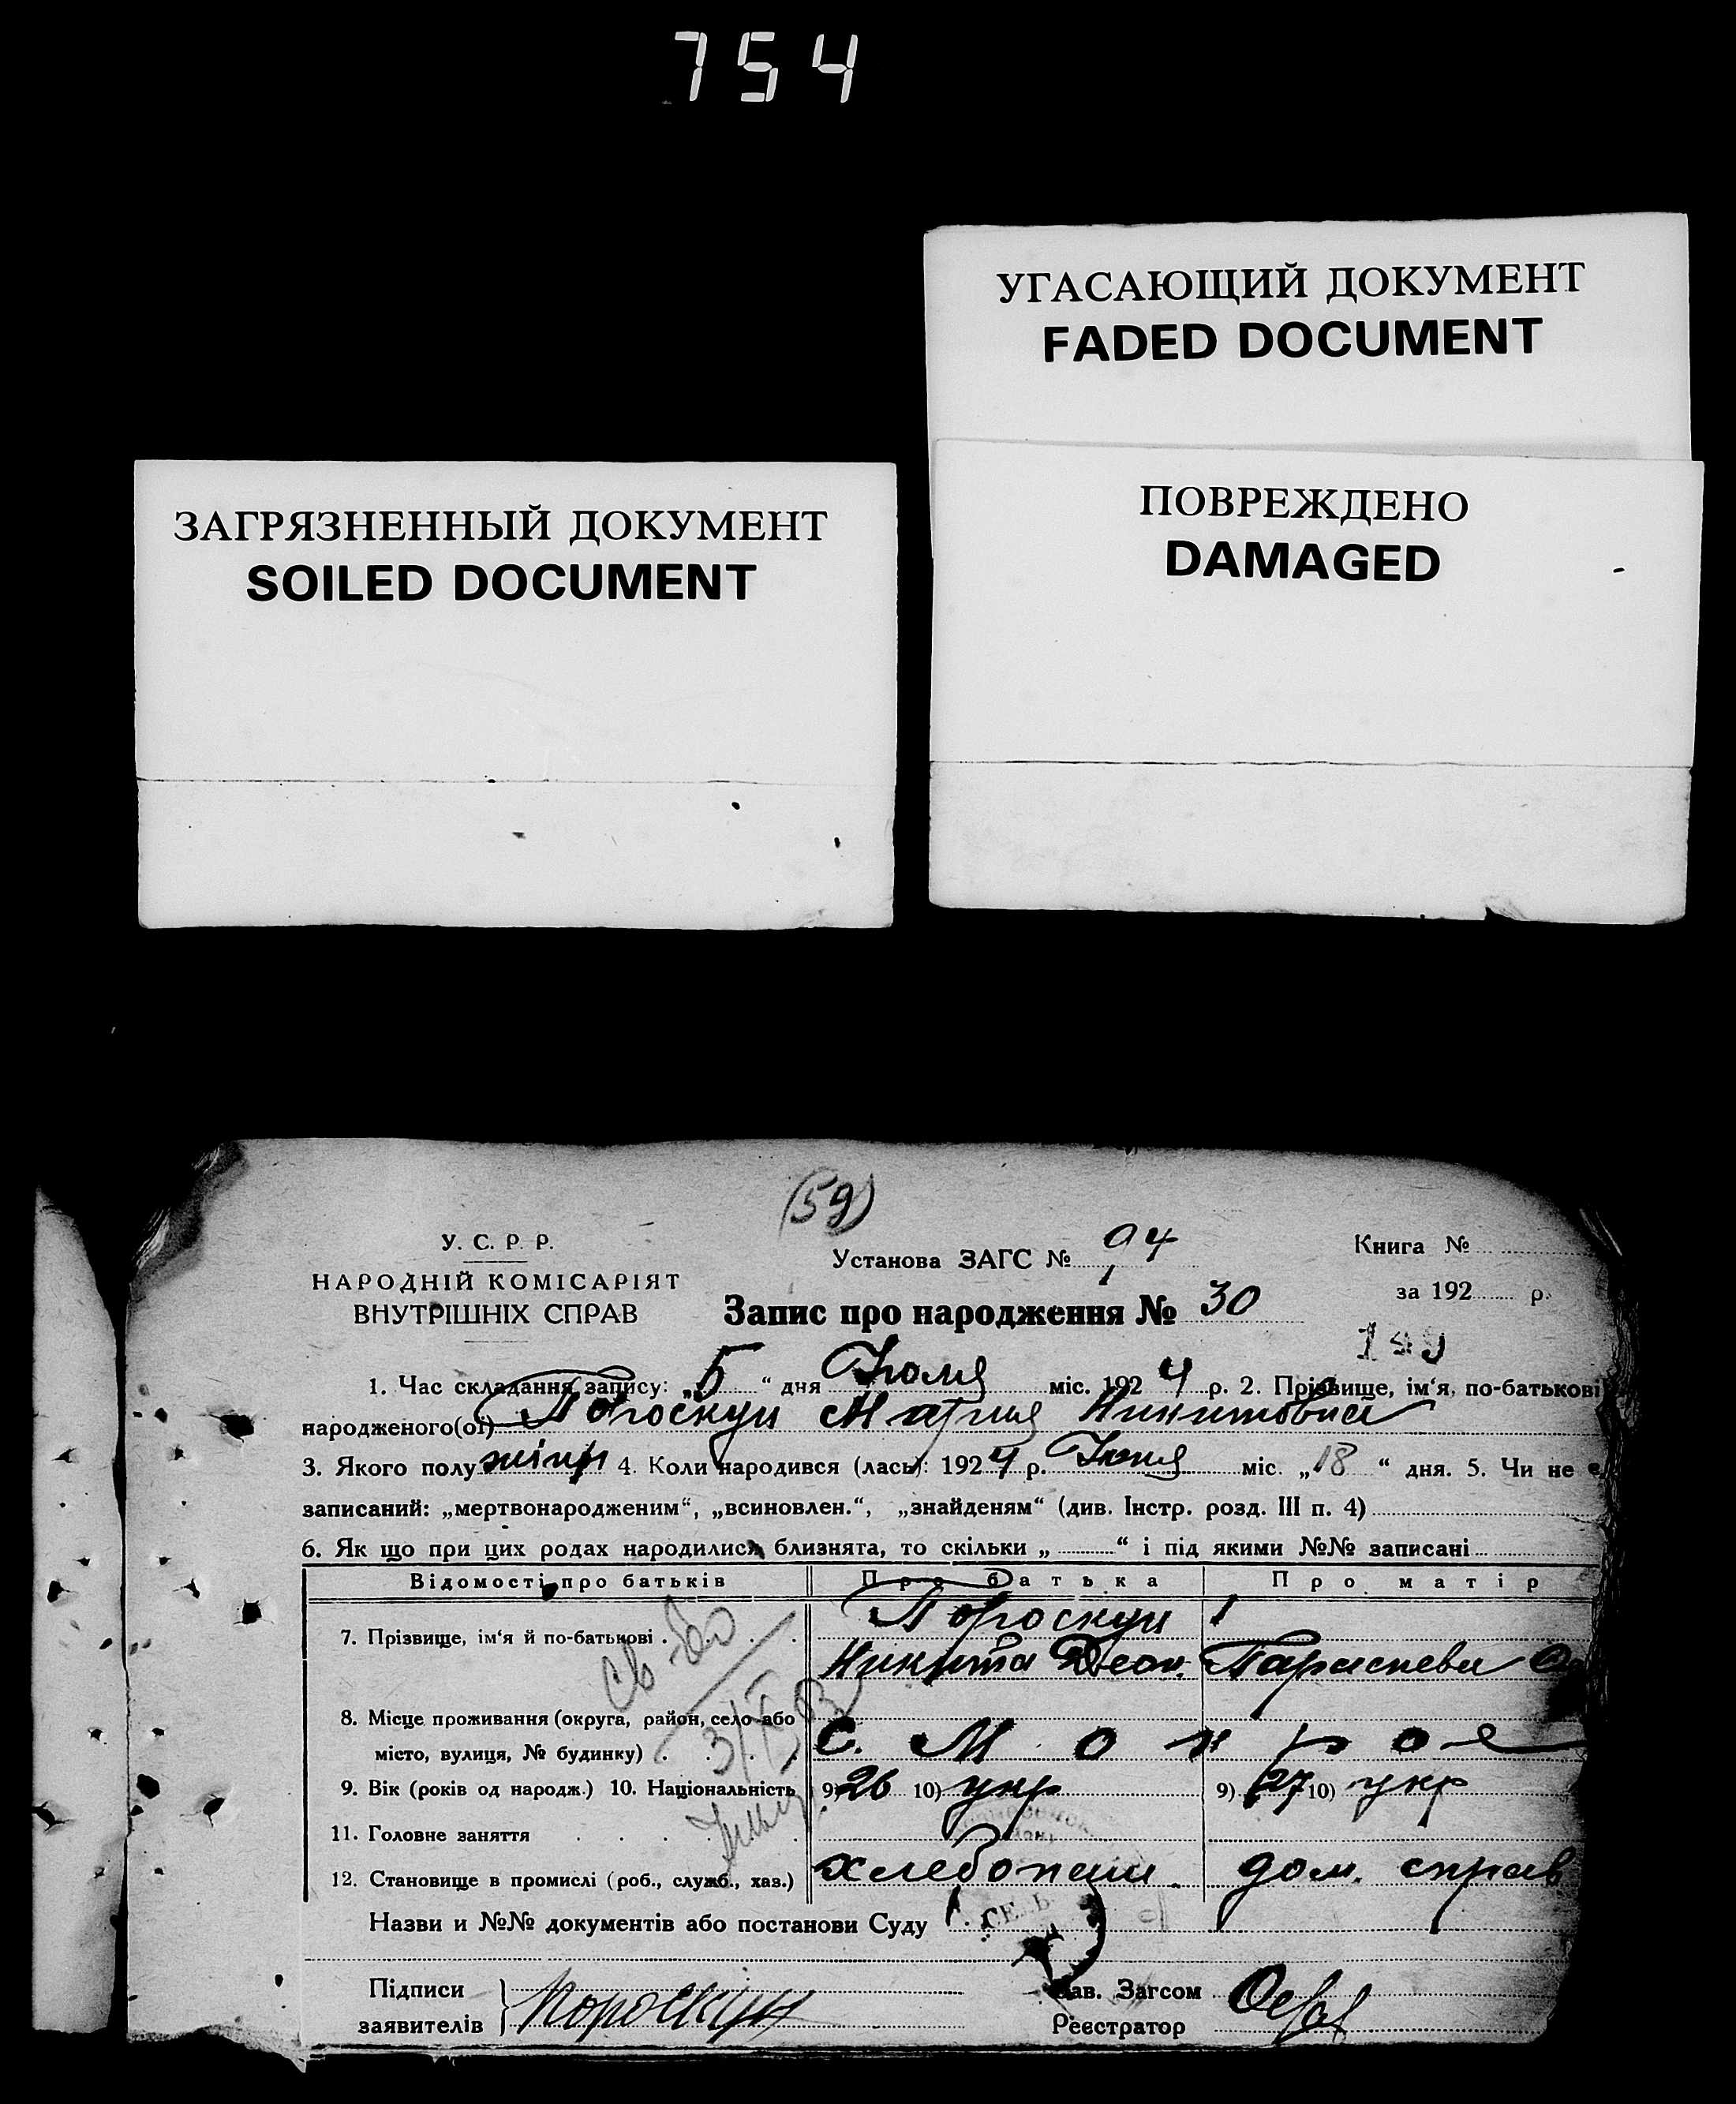 754
УГАСАЮЩИЙ ДОКУМЕНТ
FADED DOCUMENT
ЗАГРЯЗНЕННЫЙ ДОКУМЕНТ
SOILED DOCUMENT
ПОВРЕЖДЕНО
DAMAGED
(59)
У. С. Р. Р.
НАРОДНІЙ КОМІСАРІЯТ
ВНУТРІШНІХ СПРАВ
Установа ЗАГС № 94
Книга №
за 192 р.
Запис про народження № 30
1. Час складання запису: „5“ дня Июля міс. 1924 р. 2. Прізвище, ім‘я, по-батькові
народженого(ої) Пороскун Мария Никитовна
3. Якого полу жіноч 4. Коли народився (лась): 1924 р. Июня міс. „18“ дня. 5. Чи не є
записаний: „мертвонародженим“, „всиновлен.“, „знайденям“ (див. Інстр. розд. III п. 4)
6. Як що при цих родах народилися близнята, то скільки „ “ і під якими №№ записані
Відомості про батьків Про батька Про матір
Пороскун
7. Прізвище, ім‘я й по-батькові
Никита Деон. Параскева
8. Місце проживання (округа, район, село або
місто, вулиця, № будинку) С. Мокрое
9. Вік (років од народж.) 10. Національність 9) 26 10) укр 9) 27 10) укр
11. Головне заняття
12. Становище в промислі (роб., служб., хаз.) хлебопаш. дом. справ
Назви и №№ документів або постанови Суду
Підписи
заявителів
Пороскун
Зав. Загсом
Реєстратор